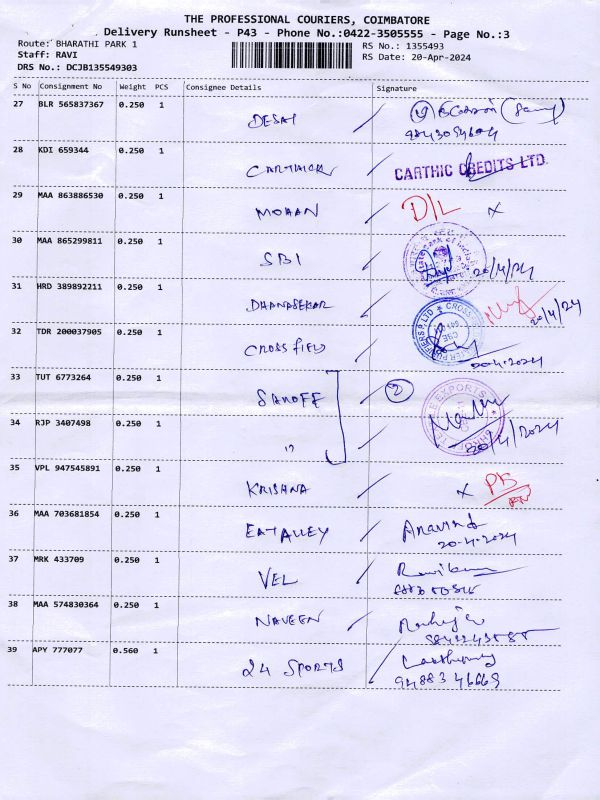 THE PROFESSIONAL COURIERS, COIMBATORE
Delivery Runsheet - P43 - Phone No.:0422-3505555 - Page No.:3
Route: BHARATHI PARK 1
Staff: RAVI
DRS No.: DCJB135549303
RS No.: 1355493
RS Date: 20-Apr-2024
S No Consignment No Weight PCS Consignee Details Signature
27 BLR 565837367 0.250 1 DESAI
28 KDI 659344 0.250 1 CARTHICK CARTHIC CREDITS LTD.
29 MAA 863886530 0.250 1 MOHAN D/L X
30 MAA 865299811 0.250 1 SBI 20/4/24
31 HRD 389892211 0.250 1 DHANASEKAR 20/4/24
32 TDR 200037905 0.250 1 CROSS FIELD 20-4-2024
33 TUT 6773264 0.250 1 SANOFE 2
34 RJP 3407498 0.250 1 " 20/4/2024
35 VPL 947545891 0.250 1 KRISHNA X
36 MAA 703681854 0.250 1 EATALLEY Aravind
20-4-2024
37 MRK 433709 0.250 1 VEL
38 MAA 574830364 0.250 1 NAVEEN
39 APY 777077 0.560 1 24 SPORTS
94883 46669